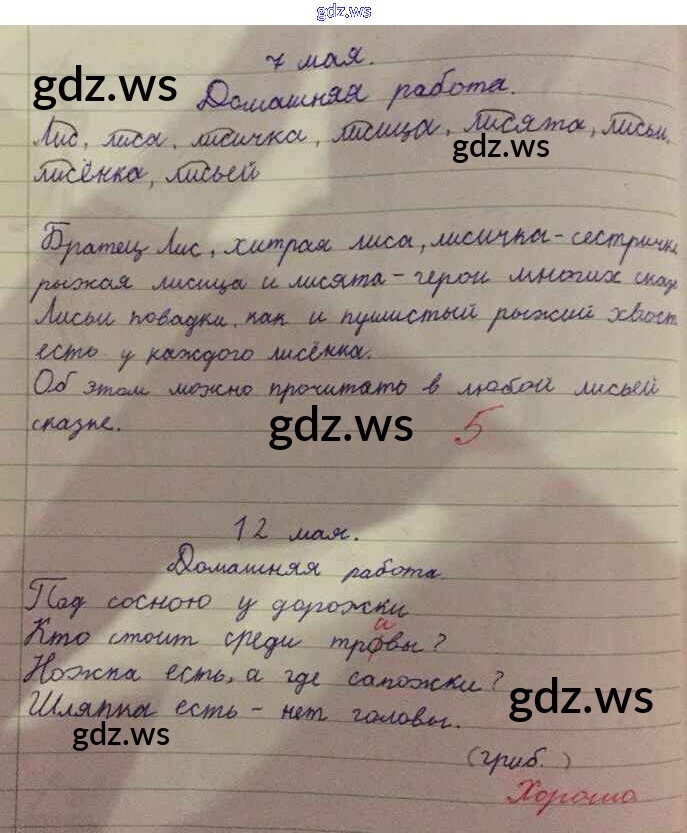 gdz.ws
7 мая.
gdz.ws
Домашняя работа.
Лис, лиса, лисичка, лисица, лисята, лисьи,
gdz.ws
лисёнка, лисьей
Братец Лис, хитрая лиса, лисичка-сестричка,
рыжая лисица и лисята - герои многих сказ
Лисьи повадки, как и пушистый рыжий хвост
есть у каждого лисёнка.
Об этом можно прочитать в любой лисьей
сказке.
gdz.ws
5
12 мая.
Домашняя работа.
Под сосною у дорожки
а
Кто стоит среди тровы?
Ножка есть, а где сапожки?
Шляпка есть - нет головы.
gdz.ws
gdz.ws
(гриб.)
Хорошо